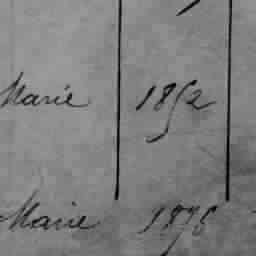 Marie 1852
Marie 1876